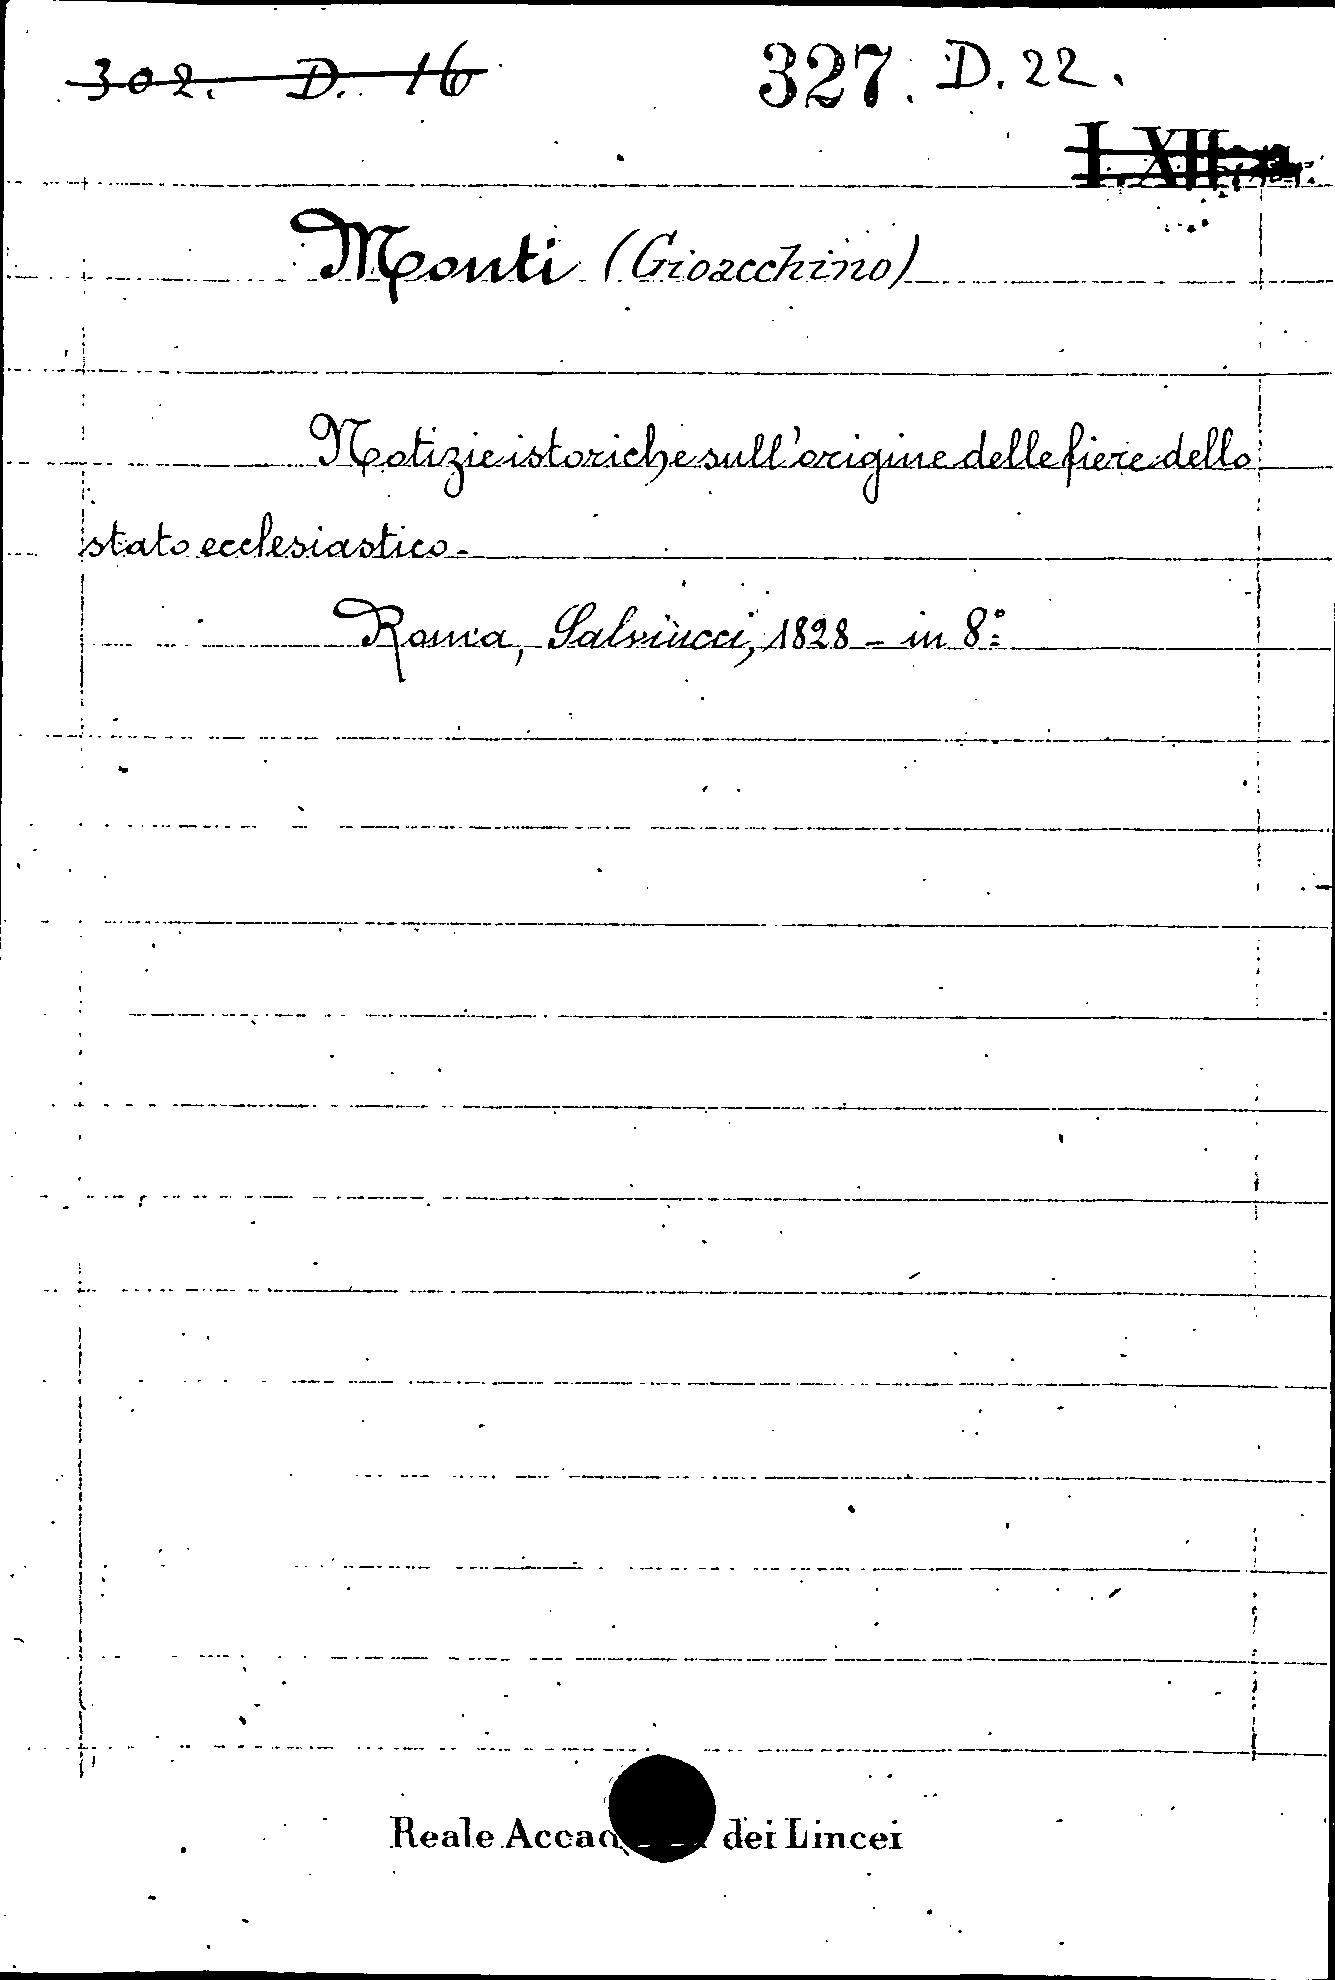 302. D. 16
327. D. 22.
LXII
Monti (Gioacchino)
Notizie istoriche sull'origine delle fiere dello
stato ecclesiastico.
Roma, Salviucci, 1828 - in 8º
Reale Accad dei Lincei